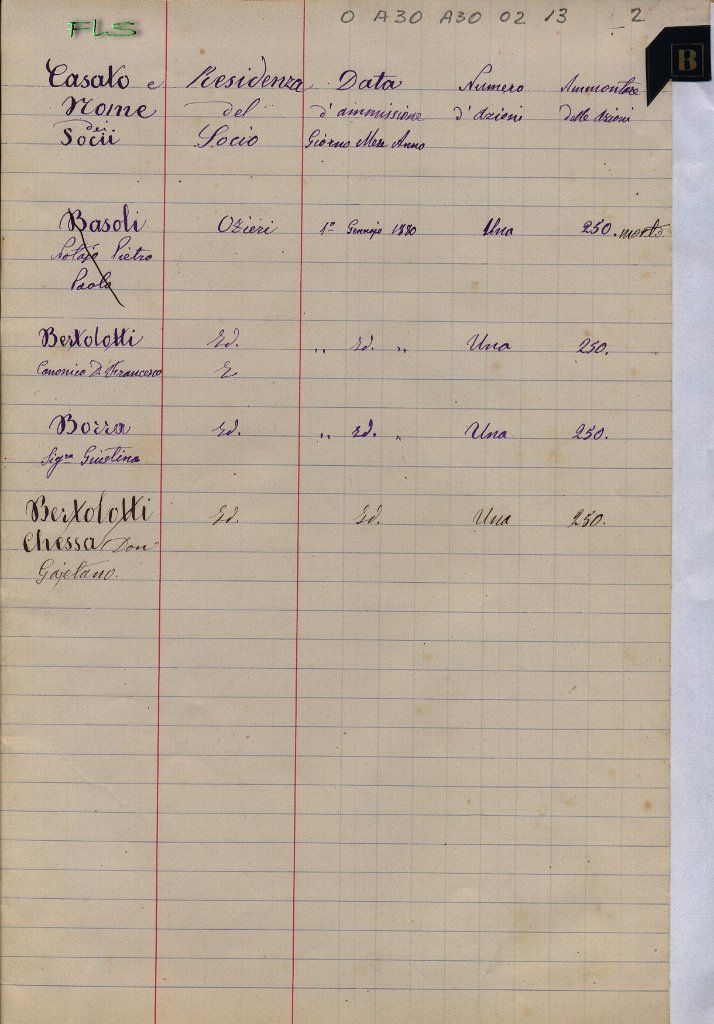 FLS
0 A30 A30 02 13 _ 2
B
Casato e Residenza Data Numero Ammontare
Nome del d'ammissione d'azioni delle azioni
dei
Socii Socio Giorno Mese Anno
Basoli Ozieri 1º Gennajo 1880 Una 250. morto
Notajo Pietro
Paolo
Bertolotti Id. " Id. " Una 250.
Canonico D. Francesco
Borra Id. " Id. " Una 250.
Sigra Giustina
Bertolotti Id. Id. Una 250.
Chessa Don
Gajetano.